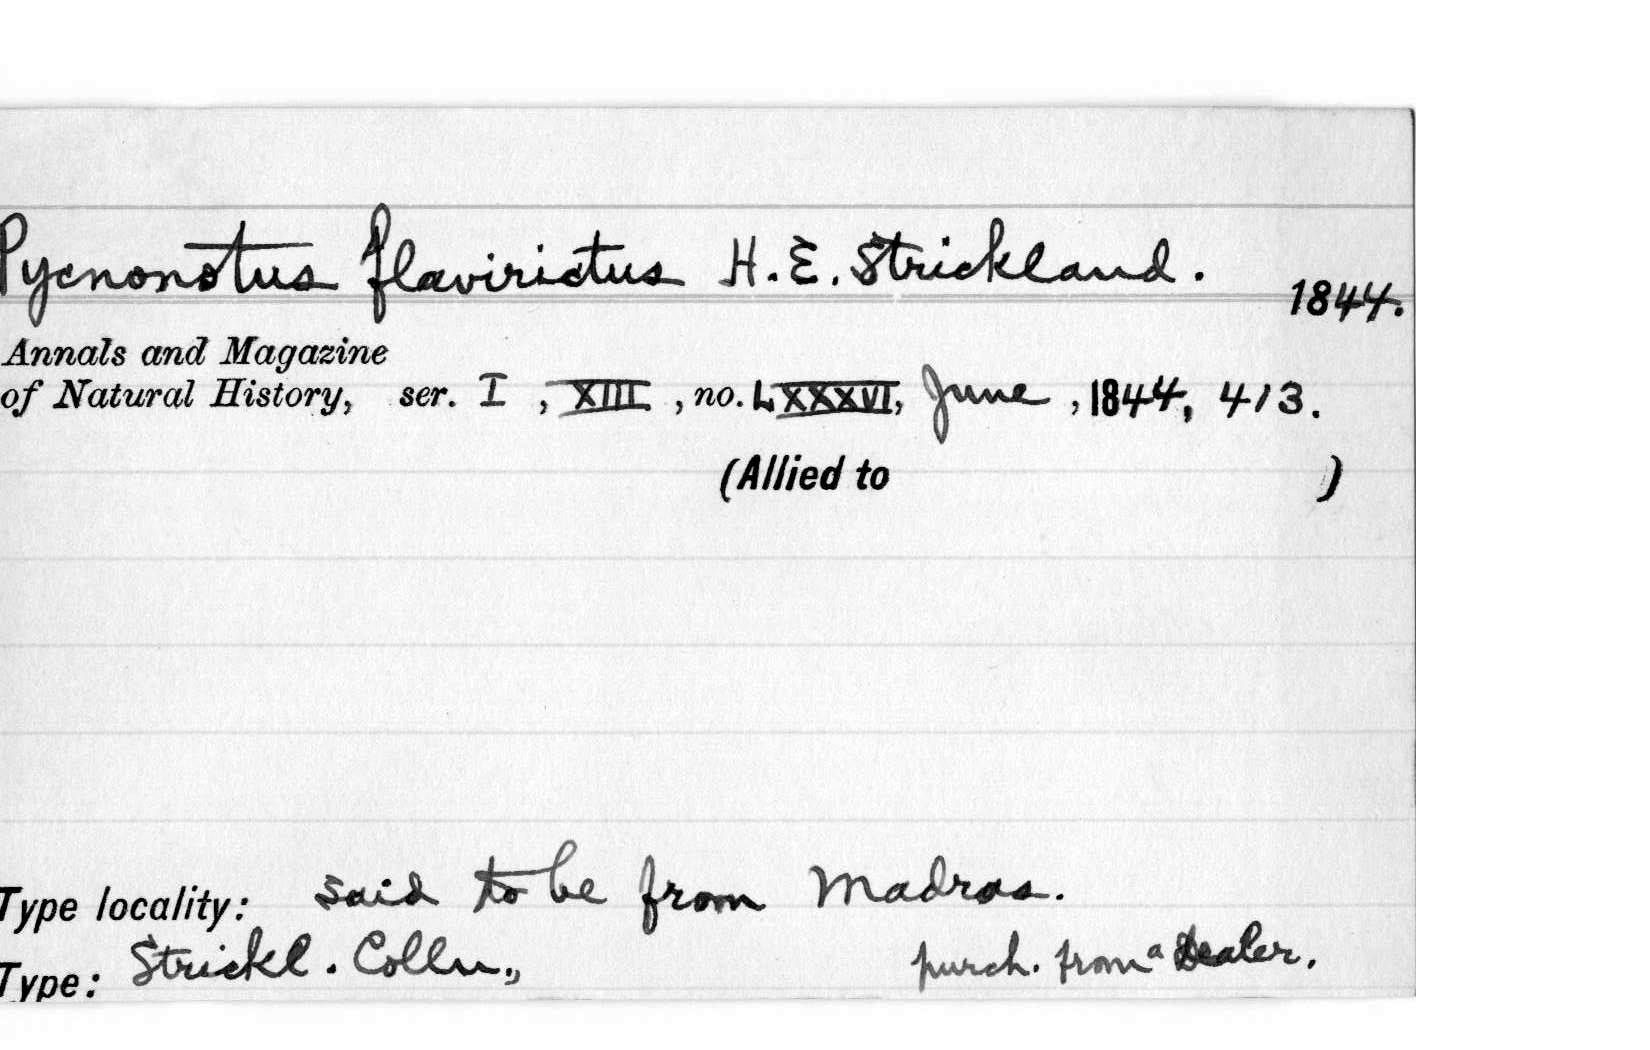 Pycnonotus flavirictus H. E. Strickland.
1844.
Annals and Magazine
of Natural History, ser. I, XIII, no. LXXXVI, June, 1844, 413.
(Allied to )
Type locality: said to be from Madras.
Type: Strickl. Colln., purch. from a Dealer.